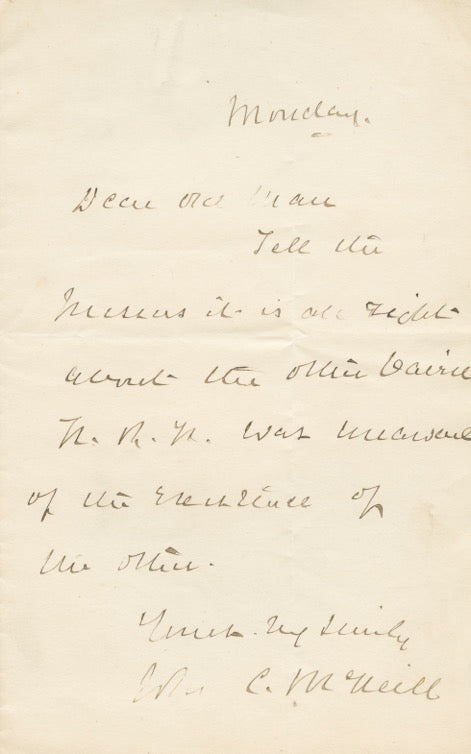 Monday.
Dear old Man
Tell the
Missus it is all right
about the other Bairn
H. R. H. was unaware
of the existence of
the other.
Yours sincerely
Jno C. McNeill